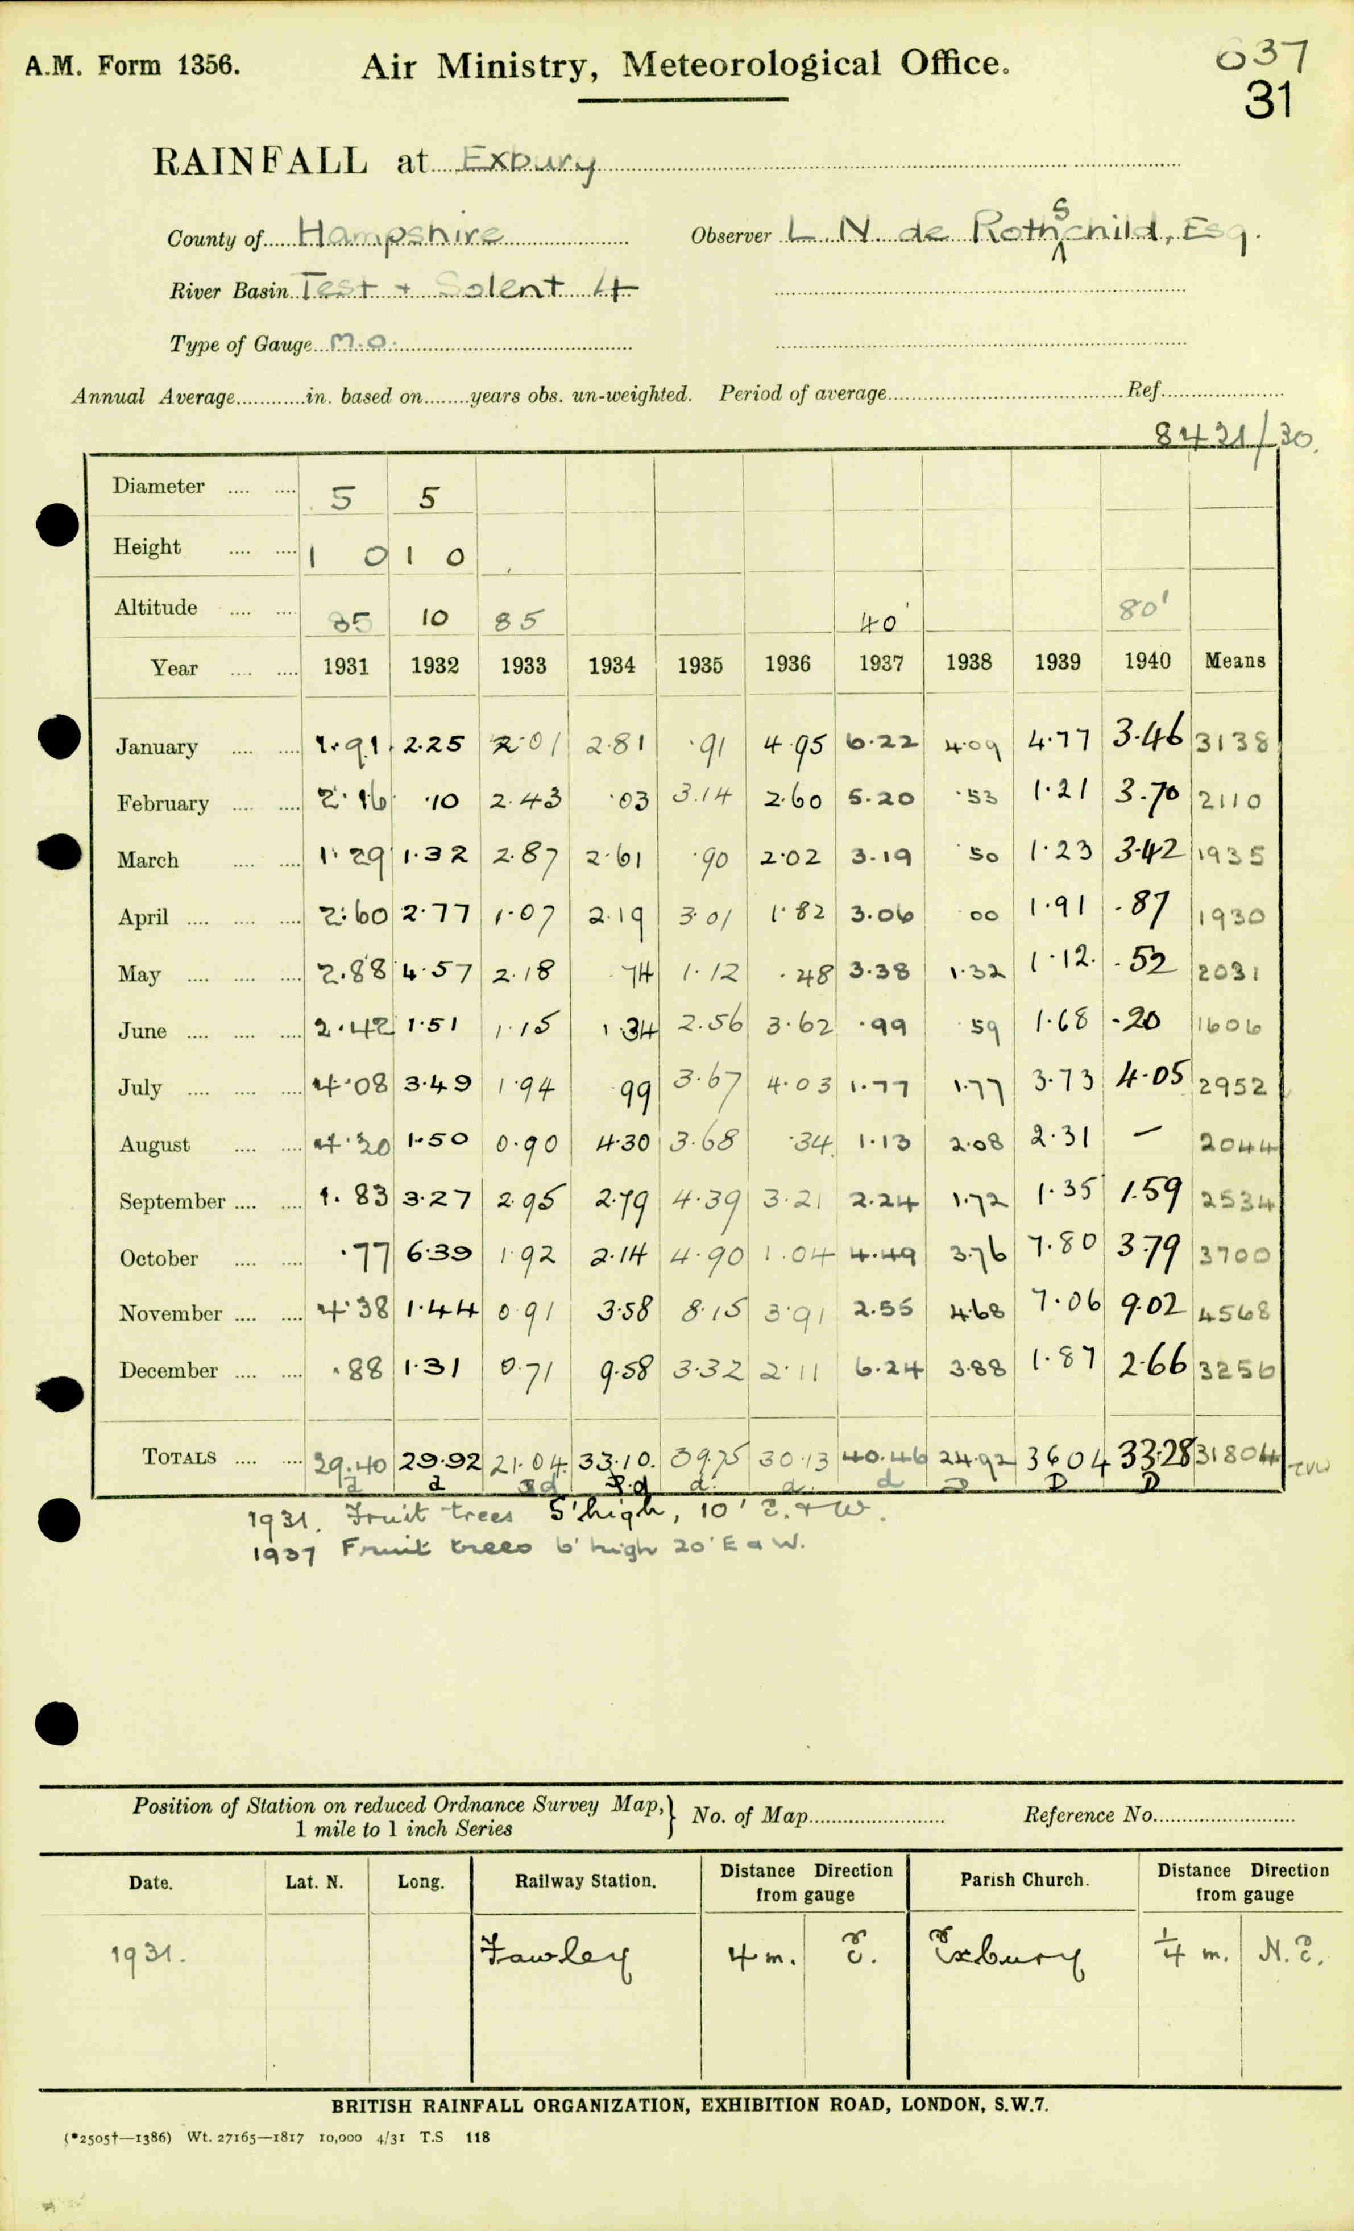 A.M. Form 1356.
Air Ministry, Meteorological Office.
637
31
RAINFALL at Exbury
County of Hampshire Observer L. N. de Rothschild, Esq.
River Basin Test + Solent 4
Type of Gauge M.O.
Annual Average............in. based on........years obs. un-weighted. Period of average............Ref............
8431/30.
Diameter .... .... 5 5
Height .... .... 1 0 1 0
Altitude .... .... 85 10 85 40' 80'
Year .... .... 1931 1932 1933 1934 1935 1936 1937 1938 1939 1940 Means
January .... .... 1.91 2.25 2.01 2.81 .91 4.95 6.22 4.09 4.77 3.46 3138
February .... .... 2.16 .10 2.43 .03 3.14 2.60 5.20 .53 1.21 3.70 2110
March .... .... 1.29 1.32 2.87 2.61 .90 2.02 3.19 .50 1.23 3.42 1935
April .... .... .... 2.60 2.77 1.07 2.19 3.01 1.82 3.06 00 1.91 .87 1930
May .... .... .... 2.88 4.57 2.18 74 1.12 .48 3.38 1.32 1.12 .52 2031
June .... .... .... 2.42 1.51 1.15 1.34 2.56 3.62 .99 59 1.68 .20 1606
July .... .... .... 4.08 3.49 1.94 99 3.67 4.03 1.77 1.77 3.73 4.05 2952
August .... .... 4.20 1.50 0.90 4.30 3.68 .34 1.13 2.08 2.31 — 2044
September .... .... 1.83 3.27 2.95 2.79 4.39 3.21 2.24 1.72 1.35 1.59 2534
October .... .... .77 6.39 1.92 2.14 4.90 1.04 4.49 3.76 7.80 3.79 3700
November .... .... 4.38 1.44 0.91 3.58 8.15 3.91 2.55 4.68 7.06 9.02 4568
December .... .... .88 1.31 0.71 9.58 3.32 2.11 6.24 3.88 1.87 2.66 3256
TOTALS .... .... 29.40 29.92 21.04 33.10 39.75 30.13 40.46 24.92 36.04 33.28 31804
d d d d d d D D D
1931. Fruit trees 5' high, 10' E. + W.
1937 Fruit trees 6' high 20' E a W.
Position of Station on reduced Ordnance Survey Map, } No. of Map............ Reference No............
1 mile to 1 inch Series
Date. Lat. N. Long. Railway Station. Distance Direction from gauge Parish Church. Distance Direction from gauge
1931. Fawley 4 m. E. Exbury ¼ m. N.E.
BRITISH RAINFALL ORGANIZATION, EXHIBITION ROAD, LONDON, S.W.7.
(*2505†—1386) Wt. 27165—1817 10,000 4/31 T.S 118